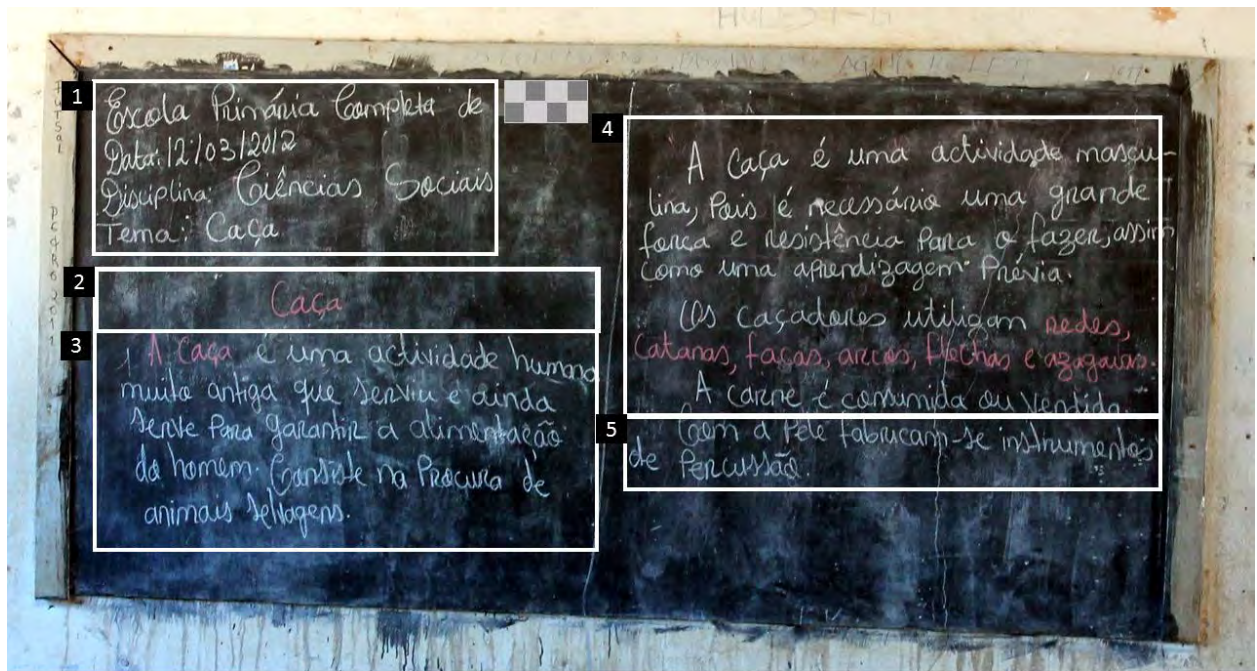 1
Escola Primária Completa de
Data: 12/03/2012
Disciplina: Ciências Sociais
Tema: Caça
2
Caça
3
A Caça é uma actividade humana
muito antiga que serviu e ainda
serve Para garantir a alimentação
do homem. Consiste na Procura de
animais selvagens.
4
A Caça é uma actividade mascu-
lina, Pois é necessário uma grande
força e resistência Para o fazer, assim
como uma aprendizagem Prévia.
Os caçadores utilizam redes,
catanas, facas, arcos, flechas e azagaias.
A carne é consumida ou vendida.
5
Com a Pele fabricam-se instrumentos
de Percussão.